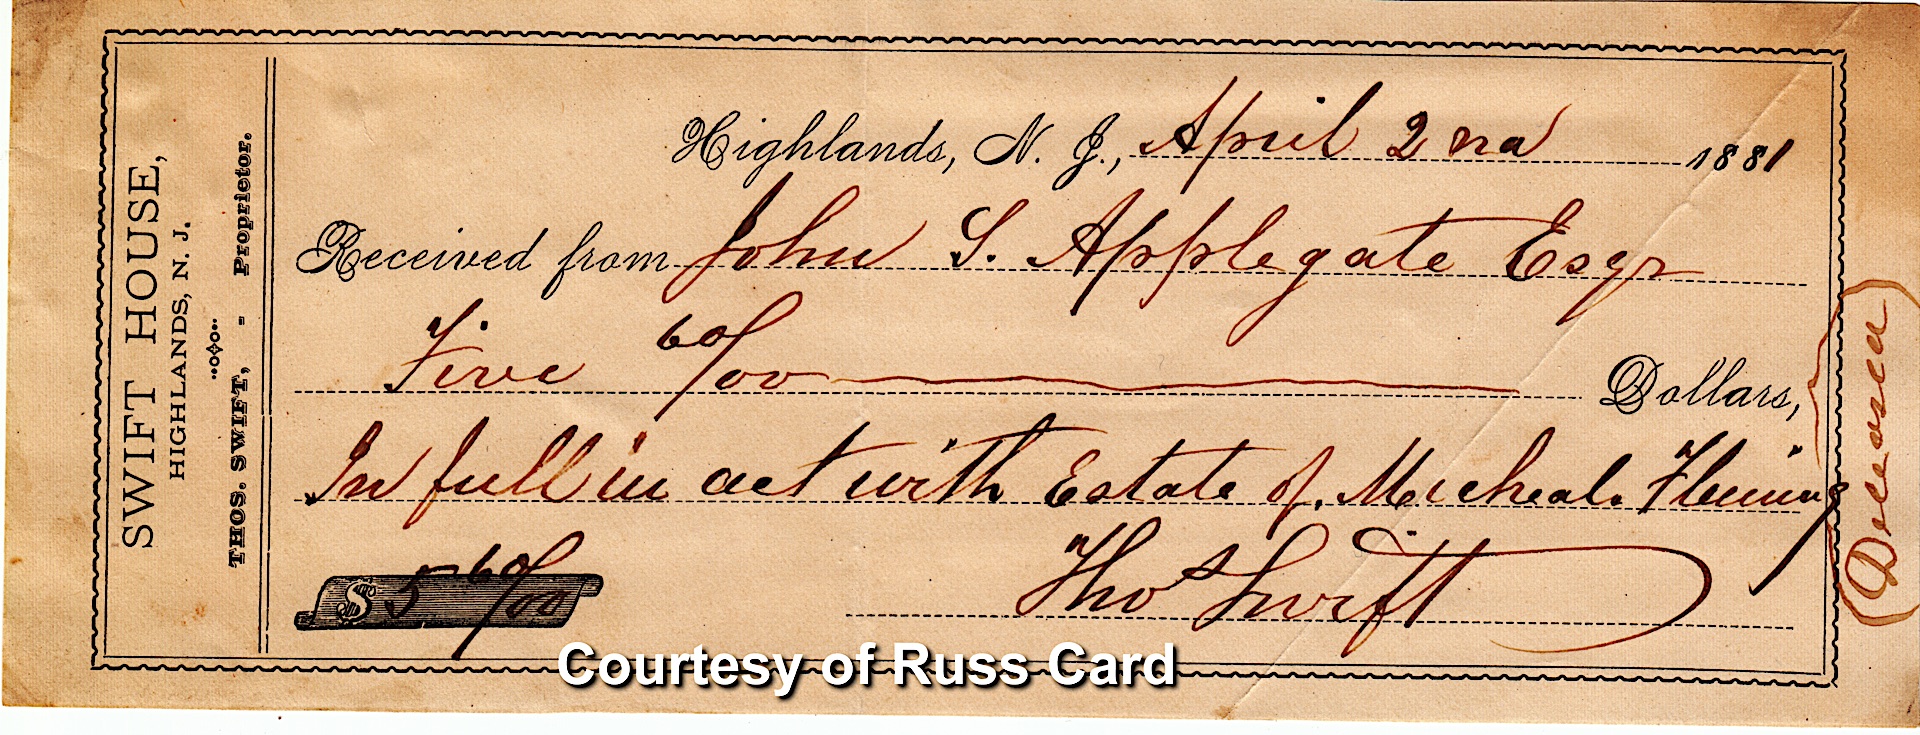 SWIFT HOUSE,
HIGHLANDS, N. J.
THOS. SWIFT, - Proprietor.
Highlands, N. J., April 2nd 1881
Received from John S. Applegate Esqr
Five 60/100 Dollars,
In full in act with Estate of Micheal Fleming
(Deceased)
$ 5 60/100
Thos Swift
Courtesy of Russ Card